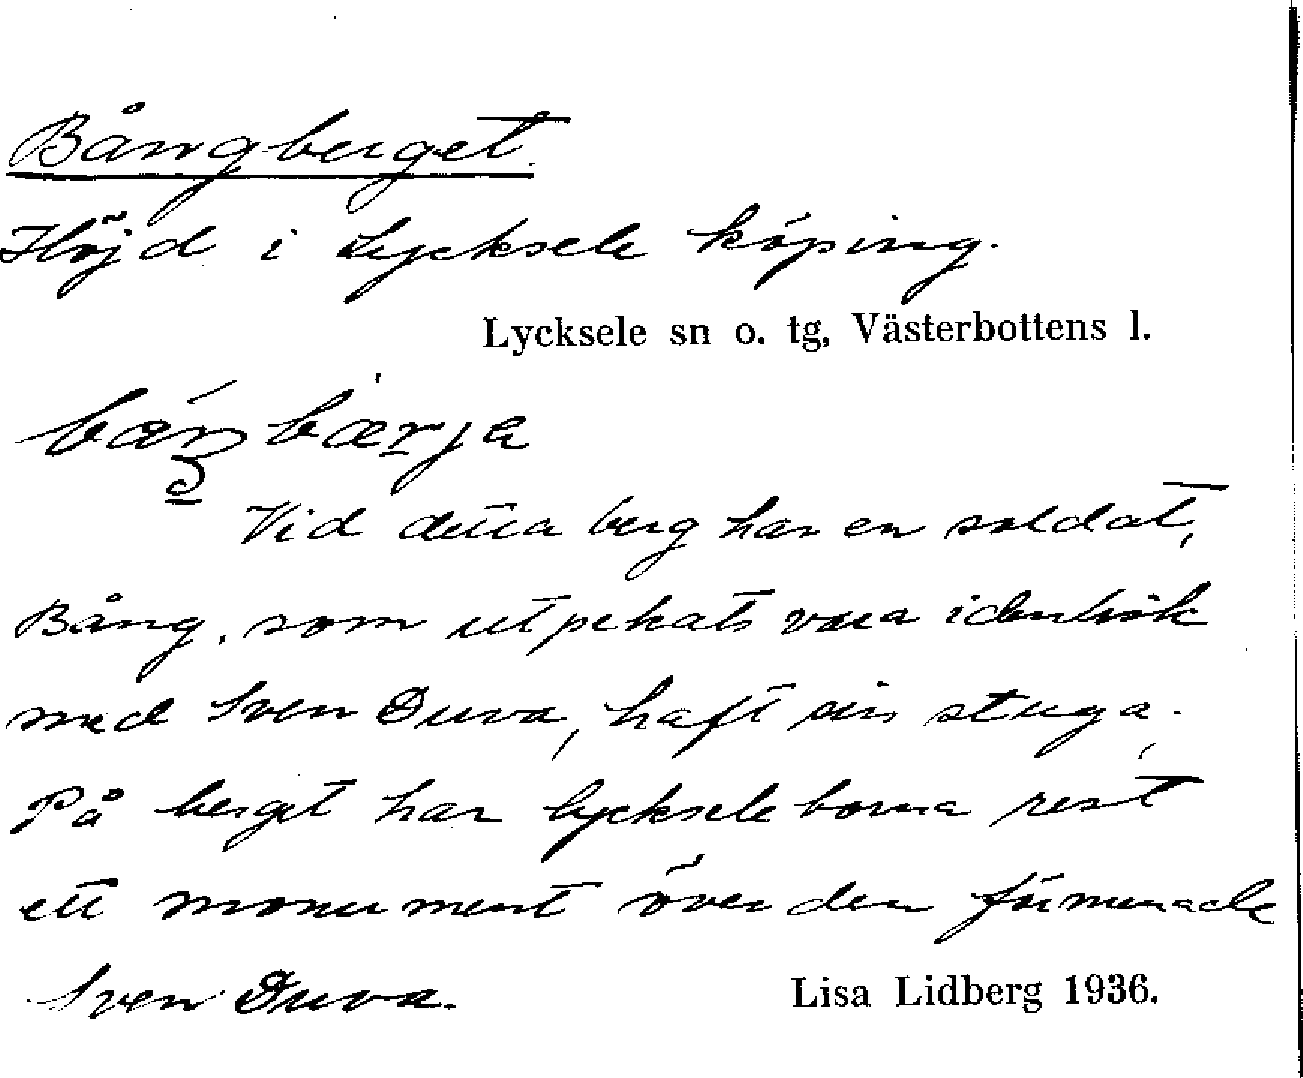 Bångberget.
Höjd i Lycksele köping.
Lycksele sn o. tg, Västerbottens l.
Vid detta berg har en soldat,
Bång, som utpekats vara identisk
med Sven Duva, haft sin stuga.
På berget har lyckseleborna rest
ett monument över den förmenade
Sven Duva.
Lisa Lidberg 1936.